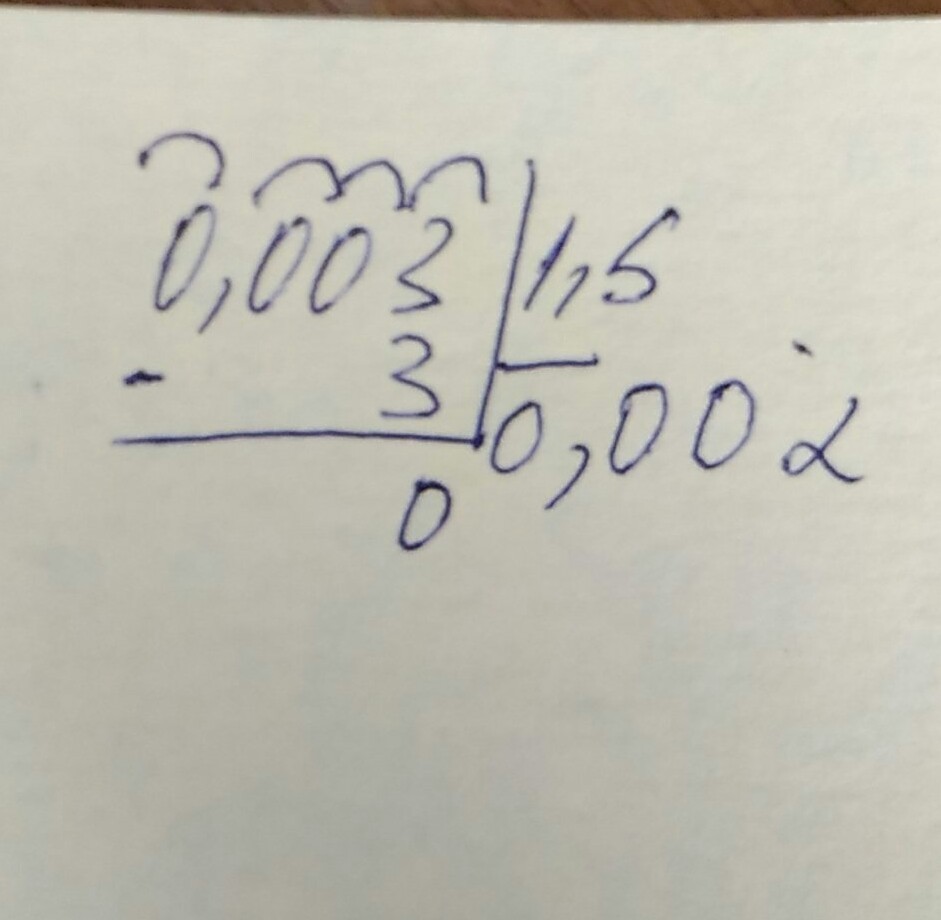 0,003 1,5
- 3
0,002
0